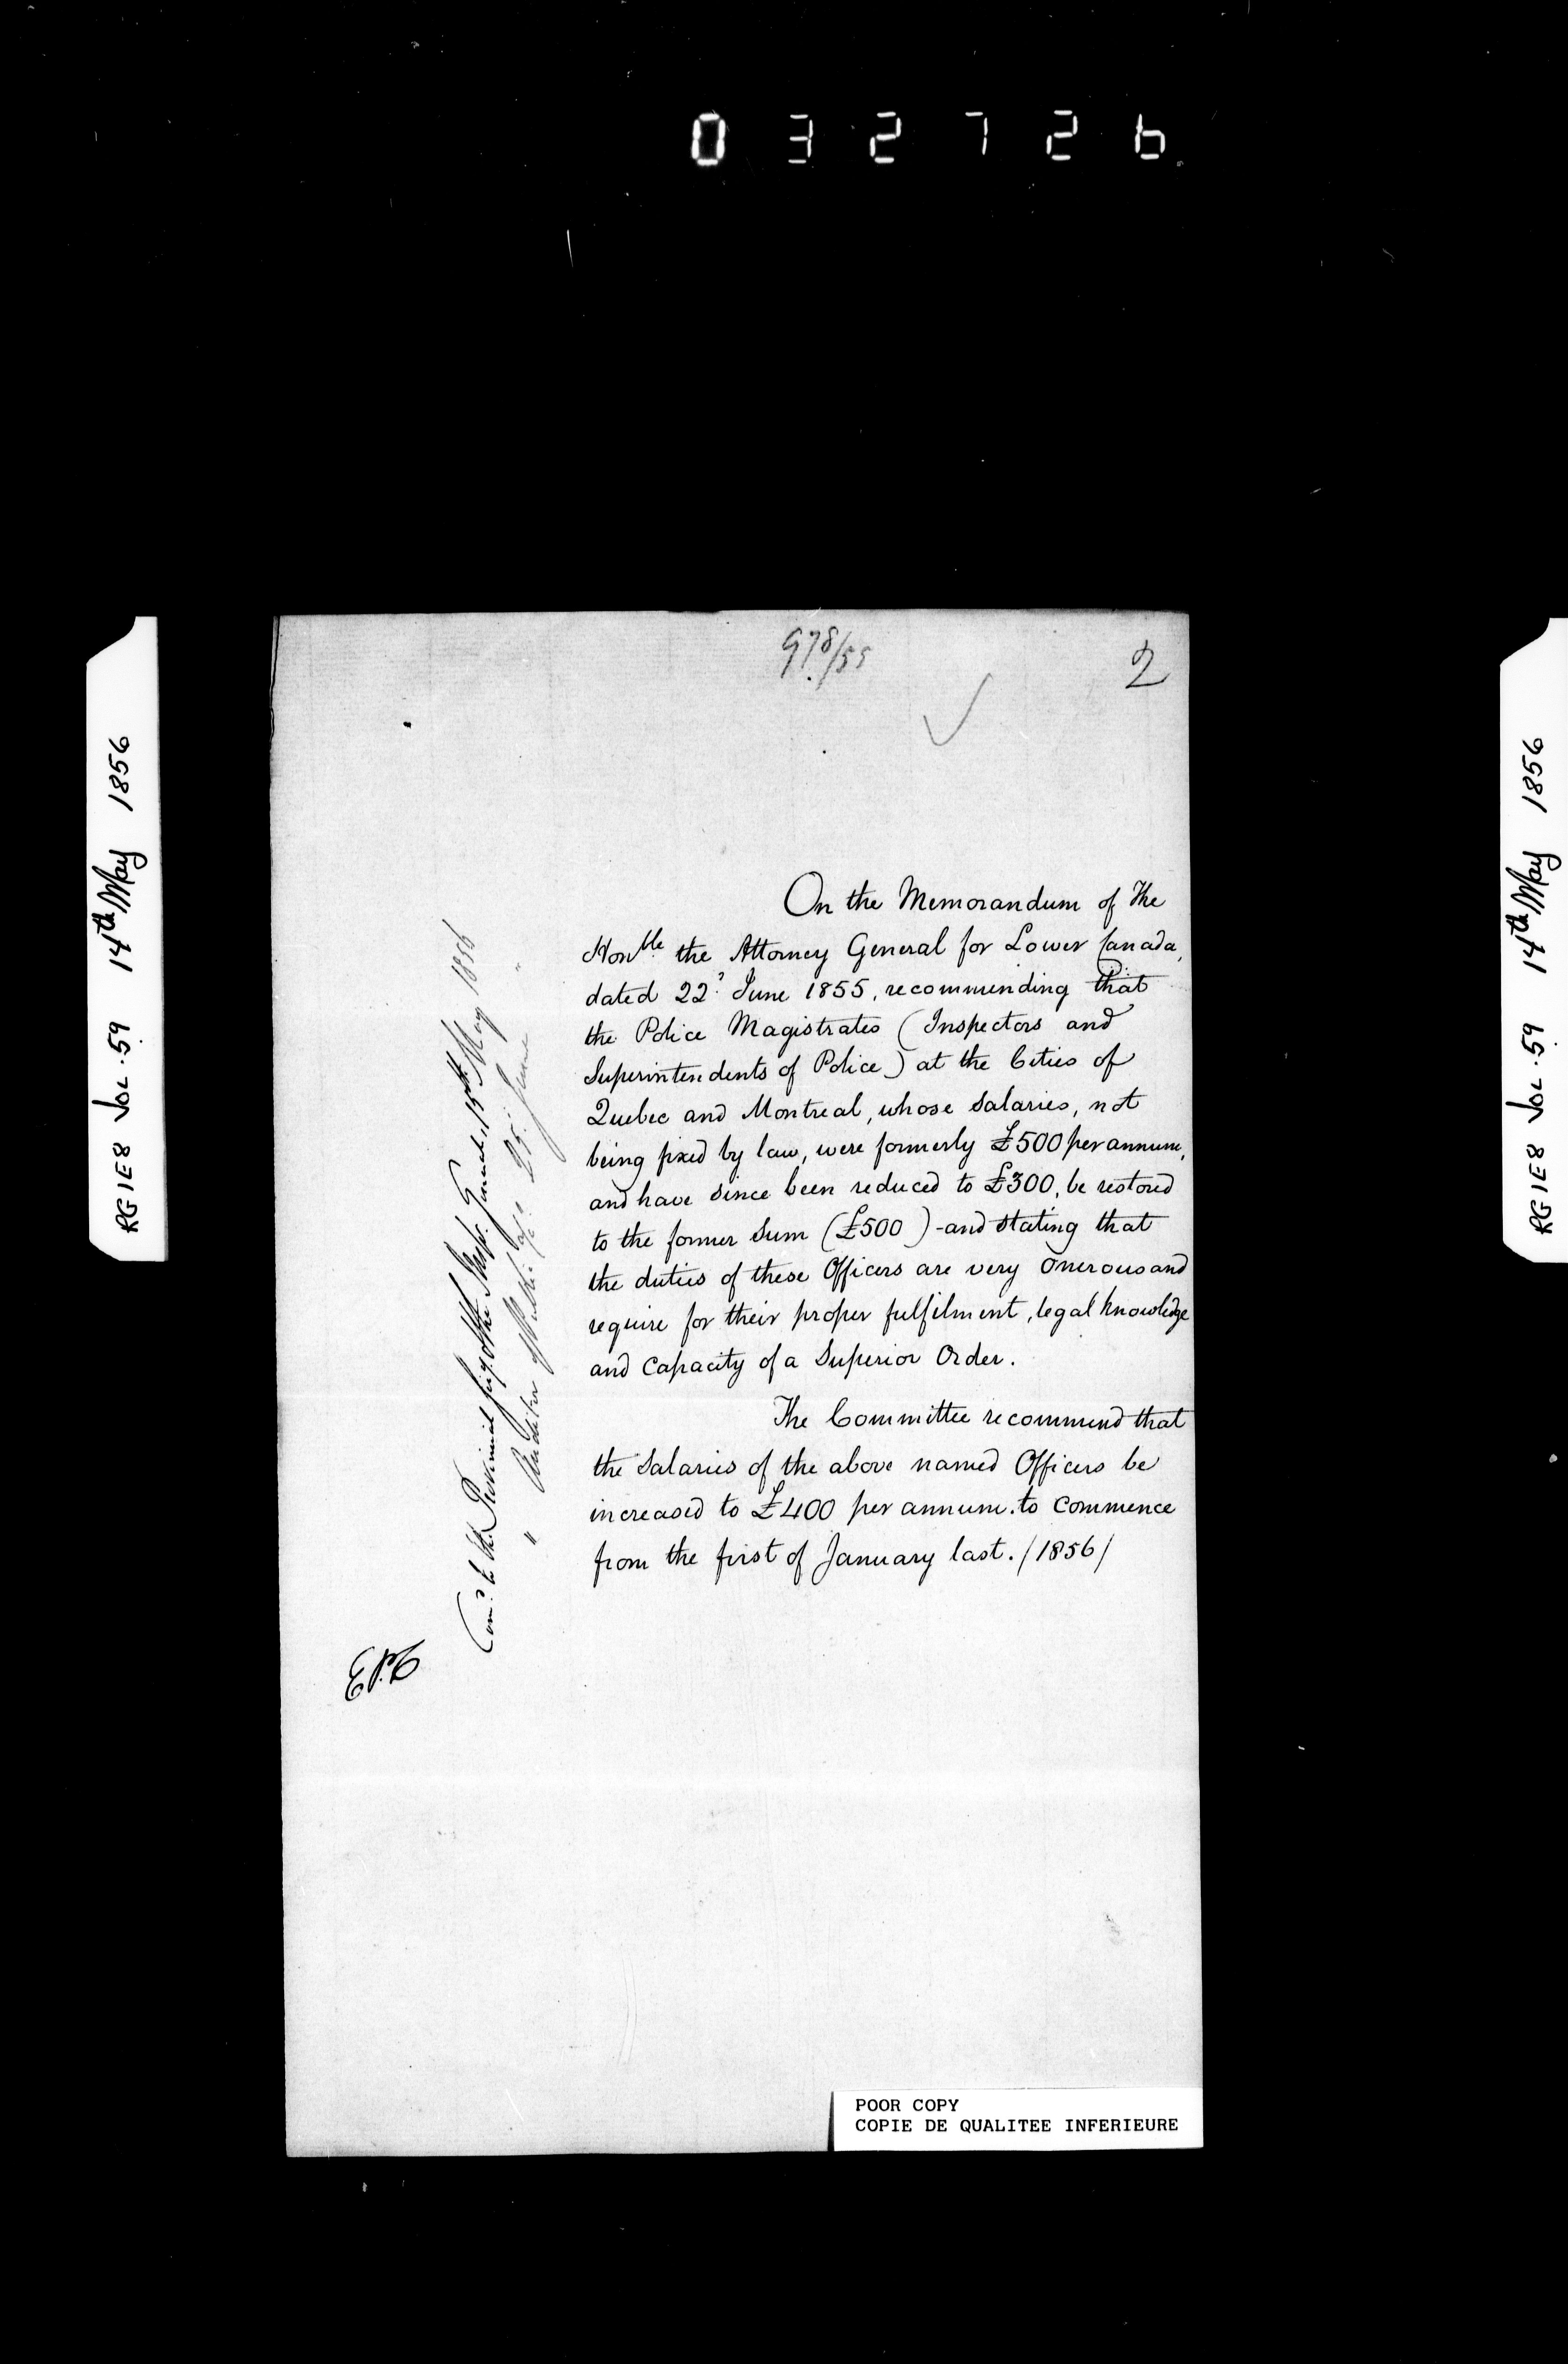 032726
RG1E8 VOL. 59 14th May 1856
978/55
2
On the Memorandum of The
Honble the Attorney General for Lower Canada,
dated 22d June 1855, recommending that
the Police Magistrates (Inspectors and
Superintendents of Police) at the Cities of
Quebec and Montreal, whose salaries, not
being fixed by law, were formerly £500 per annum,
and have since been reduced to £300, be restored
to the former sum (£500) - and stating that
the duties of these Officers are very onerous and
require for their proper fulfilment, legal knowledge
and capacity of a Superior Order.
The Committee recommend that
the Salaries of the above named Officers be
increased to £400 per annum. to commence
from the first of January last. /1856/
Comd. to the Provincial Secy. & the Insp. General, 15th May 1856
" Auditor of Public 25 June "
E.P.T
RG1E8 VOL. 59 14th May 1856
POOR COPY
COPIE DE QUALITEE INFERIEURE